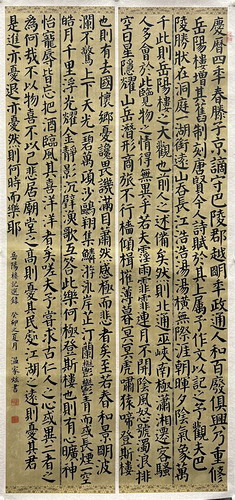 慶曆四年春滕子京謫守巴陵郡越明年政通人和百廢俱興乃重修
岳陽樓增其舊制刻唐賢今人詩賦於其上屬予作文以記之予觀夫巴
陵勝狀在洞庭一湖銜遠山吞長江浩浩湯湯橫無際涯朝暉夕陰氣象萬
千此則岳陽樓之大觀也前人之述備矣然則北通巫峽南極瀟湘遷客騷
人多會於此覽物之情得無異乎若夫霪雨霏霏連月不開陰風怒號濁浪排
空日星隱耀山岳潛形商旅不行檣傾楫摧薄暮冥冥虎嘯猿啼登斯樓
也則有去國懷鄉憂讒畏譏滿目蕭然感極而悲者矣至若春和景明波
瀾不驚上下天光一碧萬頃沙鷗翔集錦鱗游泳岸芷汀蘭鬱鬱青青而或長煙一空
皓月千里浮光耀金靜影沉璧漁歌互答此樂何極登斯樓也則有心曠神
怡寵辱皆忘把酒臨風其喜洋洋者矣嗟夫予嘗求古仁人之心或異二者之
為何哉不以物喜不以己悲居廟堂之高則憂其民處江湖之遠則憂其君
是進亦憂退亦憂然則何時而樂耶
岳陽樓記節錄 癸卯之夏月 温家書